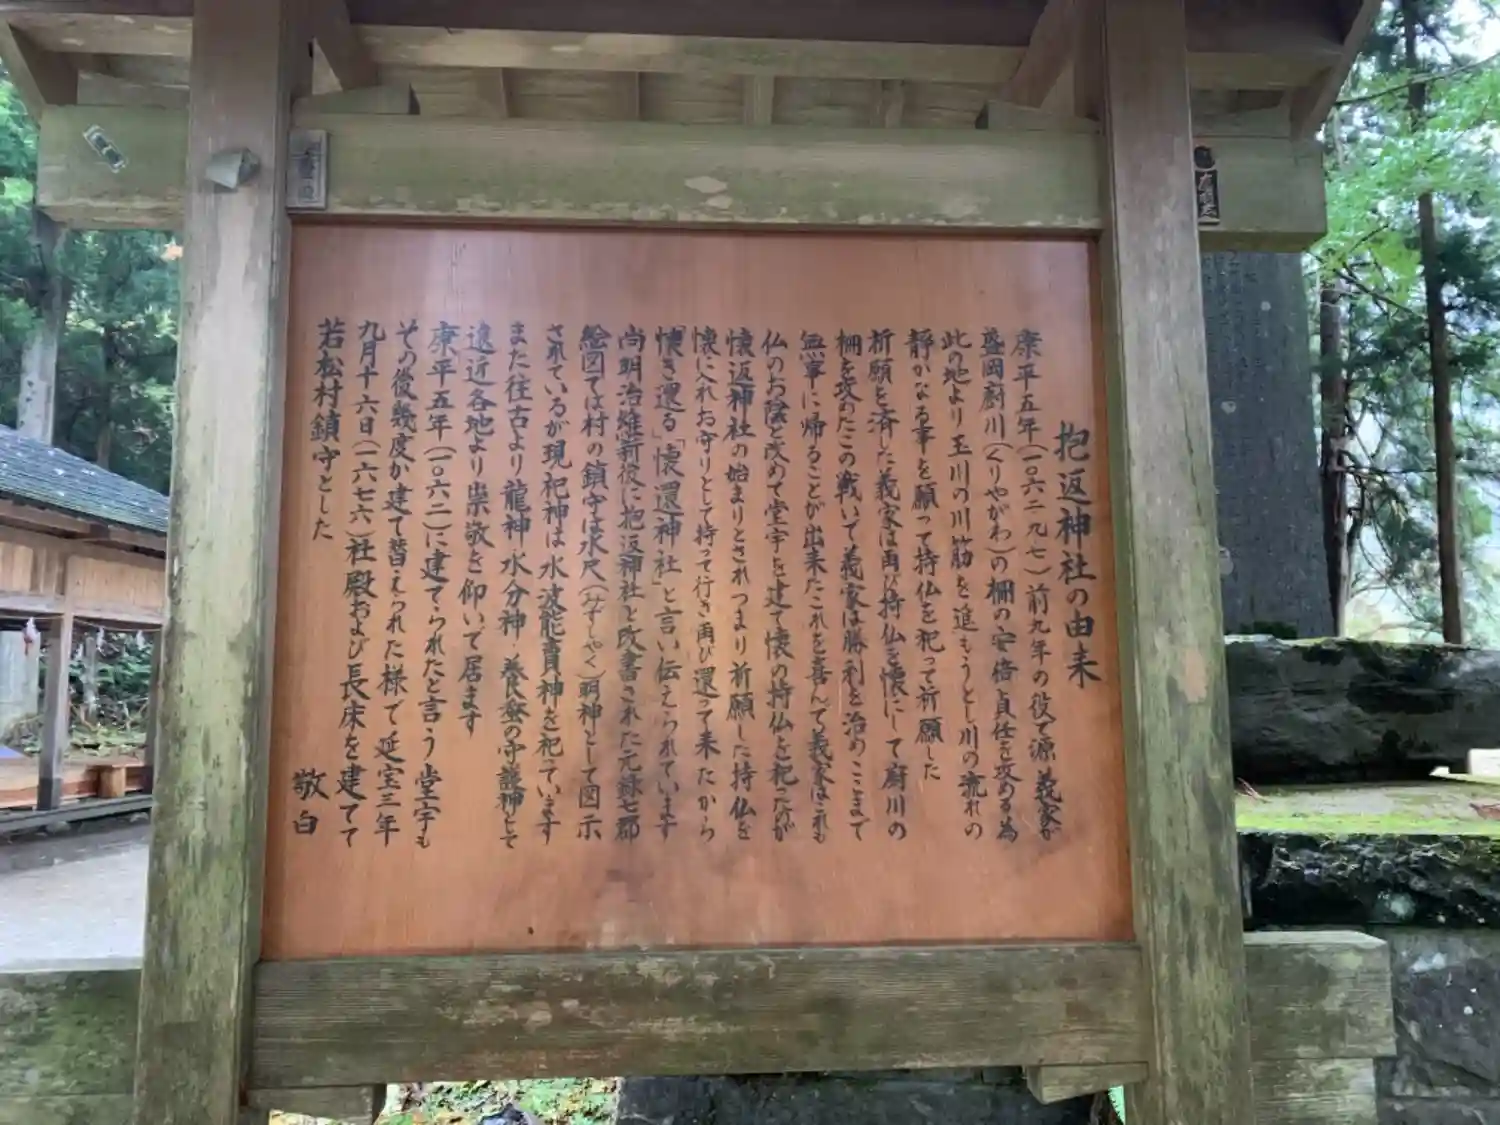 抱返神社の由来
康平五年(一〇六二九七)前九年の役で源義家が
盛岡厨川(くりやがわ)の柵の安倍貞任を攻める為
此の地より玉川の川筋を進もうとし川の流れの
静かなる事を願って持仏を祀って祈願した
祈願を済した義家は再び持仏を懐にして厨川の
柵を攻めたこの戦いで義家は勝利を治めここまで
無事に帰ることが出来たこれを喜んで義家はこれも
仏のお陰と改めて堂宇を建て懐の持仏を祀ったのが
懐返神社の始まりとされつまり祈願した持仏を
懐に入れお守りとして持って行き再び還って来たから
「懐き還る」「懐還神社」と言い伝えられています
尚明治維新後に抱返神社と改書された元禄七郡
絵図では村の鎮守は水尺(みずしゃく)明神として図示
されているが現祀神は水波能賣神を祀っています
また往古より龍神・水分神・養蚕の守護神として
遠近各地より崇敬を仰いで居ます
康平五年(一〇六二)に建てられたと言う堂宇も
その後幾度か建て替えられた様で延宝三年
九月十六日(一六七六)社殿および長床を建てて
若松村鎮守とした
敬白